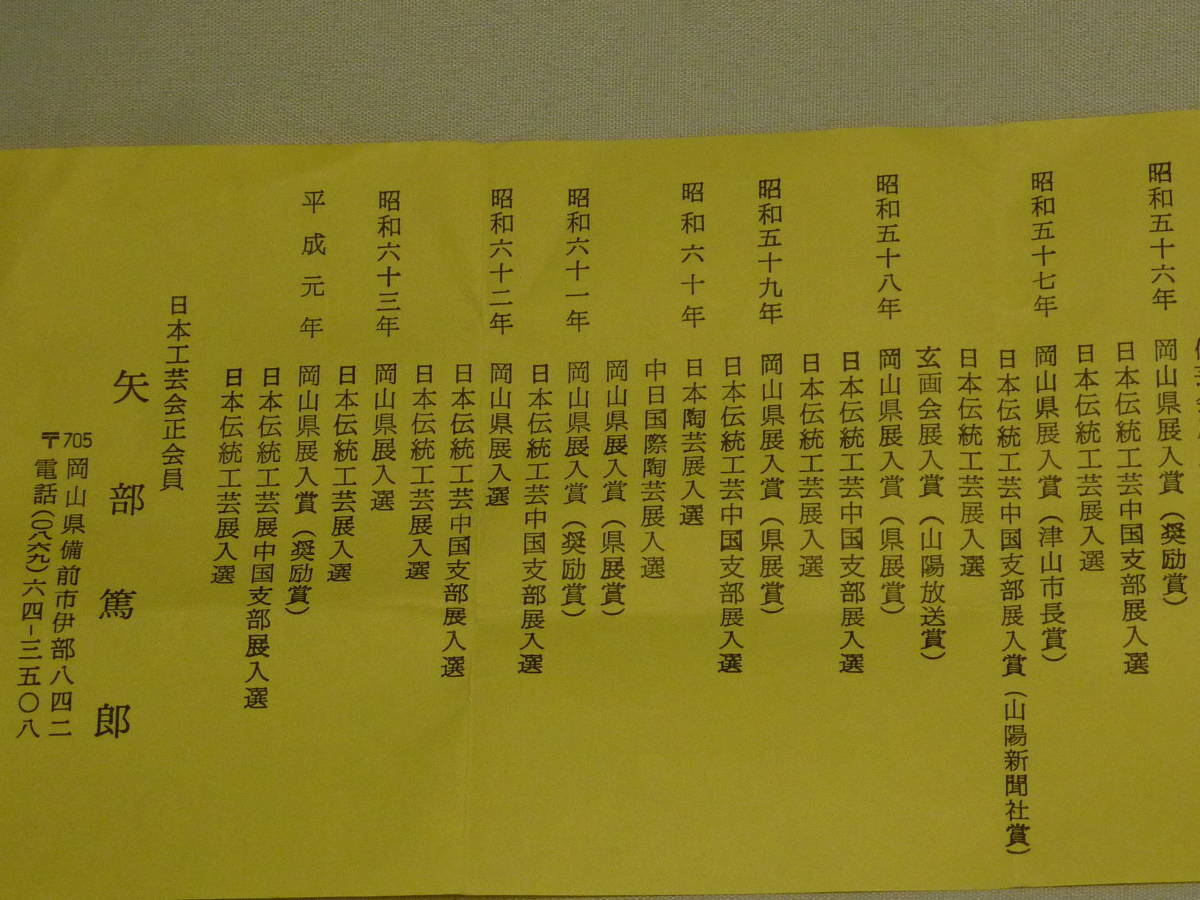 昭和五十六年 岡山県展入賞(奨励賞)
日本伝統工芸中国支部展入選
日本伝統工芸展入選
昭和五十七年 岡山県展入賞(津山市長賞)
日本伝統工芸中国支部展入賞(山陽新聞社賞)
日本伝統工芸展入選
玄画会展入賞(山陽放送賞)
昭和五十八年 岡山県展入賞(県展賞)
日本伝統工芸中国支部展入選
日本伝統工芸展入選
昭和五十九年 岡山県展入賞(県展賞)
日本伝統工芸中国支部展入選
昭和六十年 日本陶芸展入選
中日国際陶芸展入選
岡山県展入賞(県展賞)
昭和六十一年 岡山県展入賞(奨励賞)
日本伝統工芸中国支部展入選
昭和六十二年 岡山県展入選
日本伝統工芸中国支部展入選
日本伝統工芸展入選
昭和六十三年 岡山県展入選
日本伝統工芸展入選
平成元年 岡山県展入賞(奨励賞)
日本伝統工芸展中国支部展入選
日本伝統工芸展入選
日本工芸会正会員
矢部篤郎
〒705 岡山県備前市伊部八四二
電話(〇八六九)六四-三五〇八